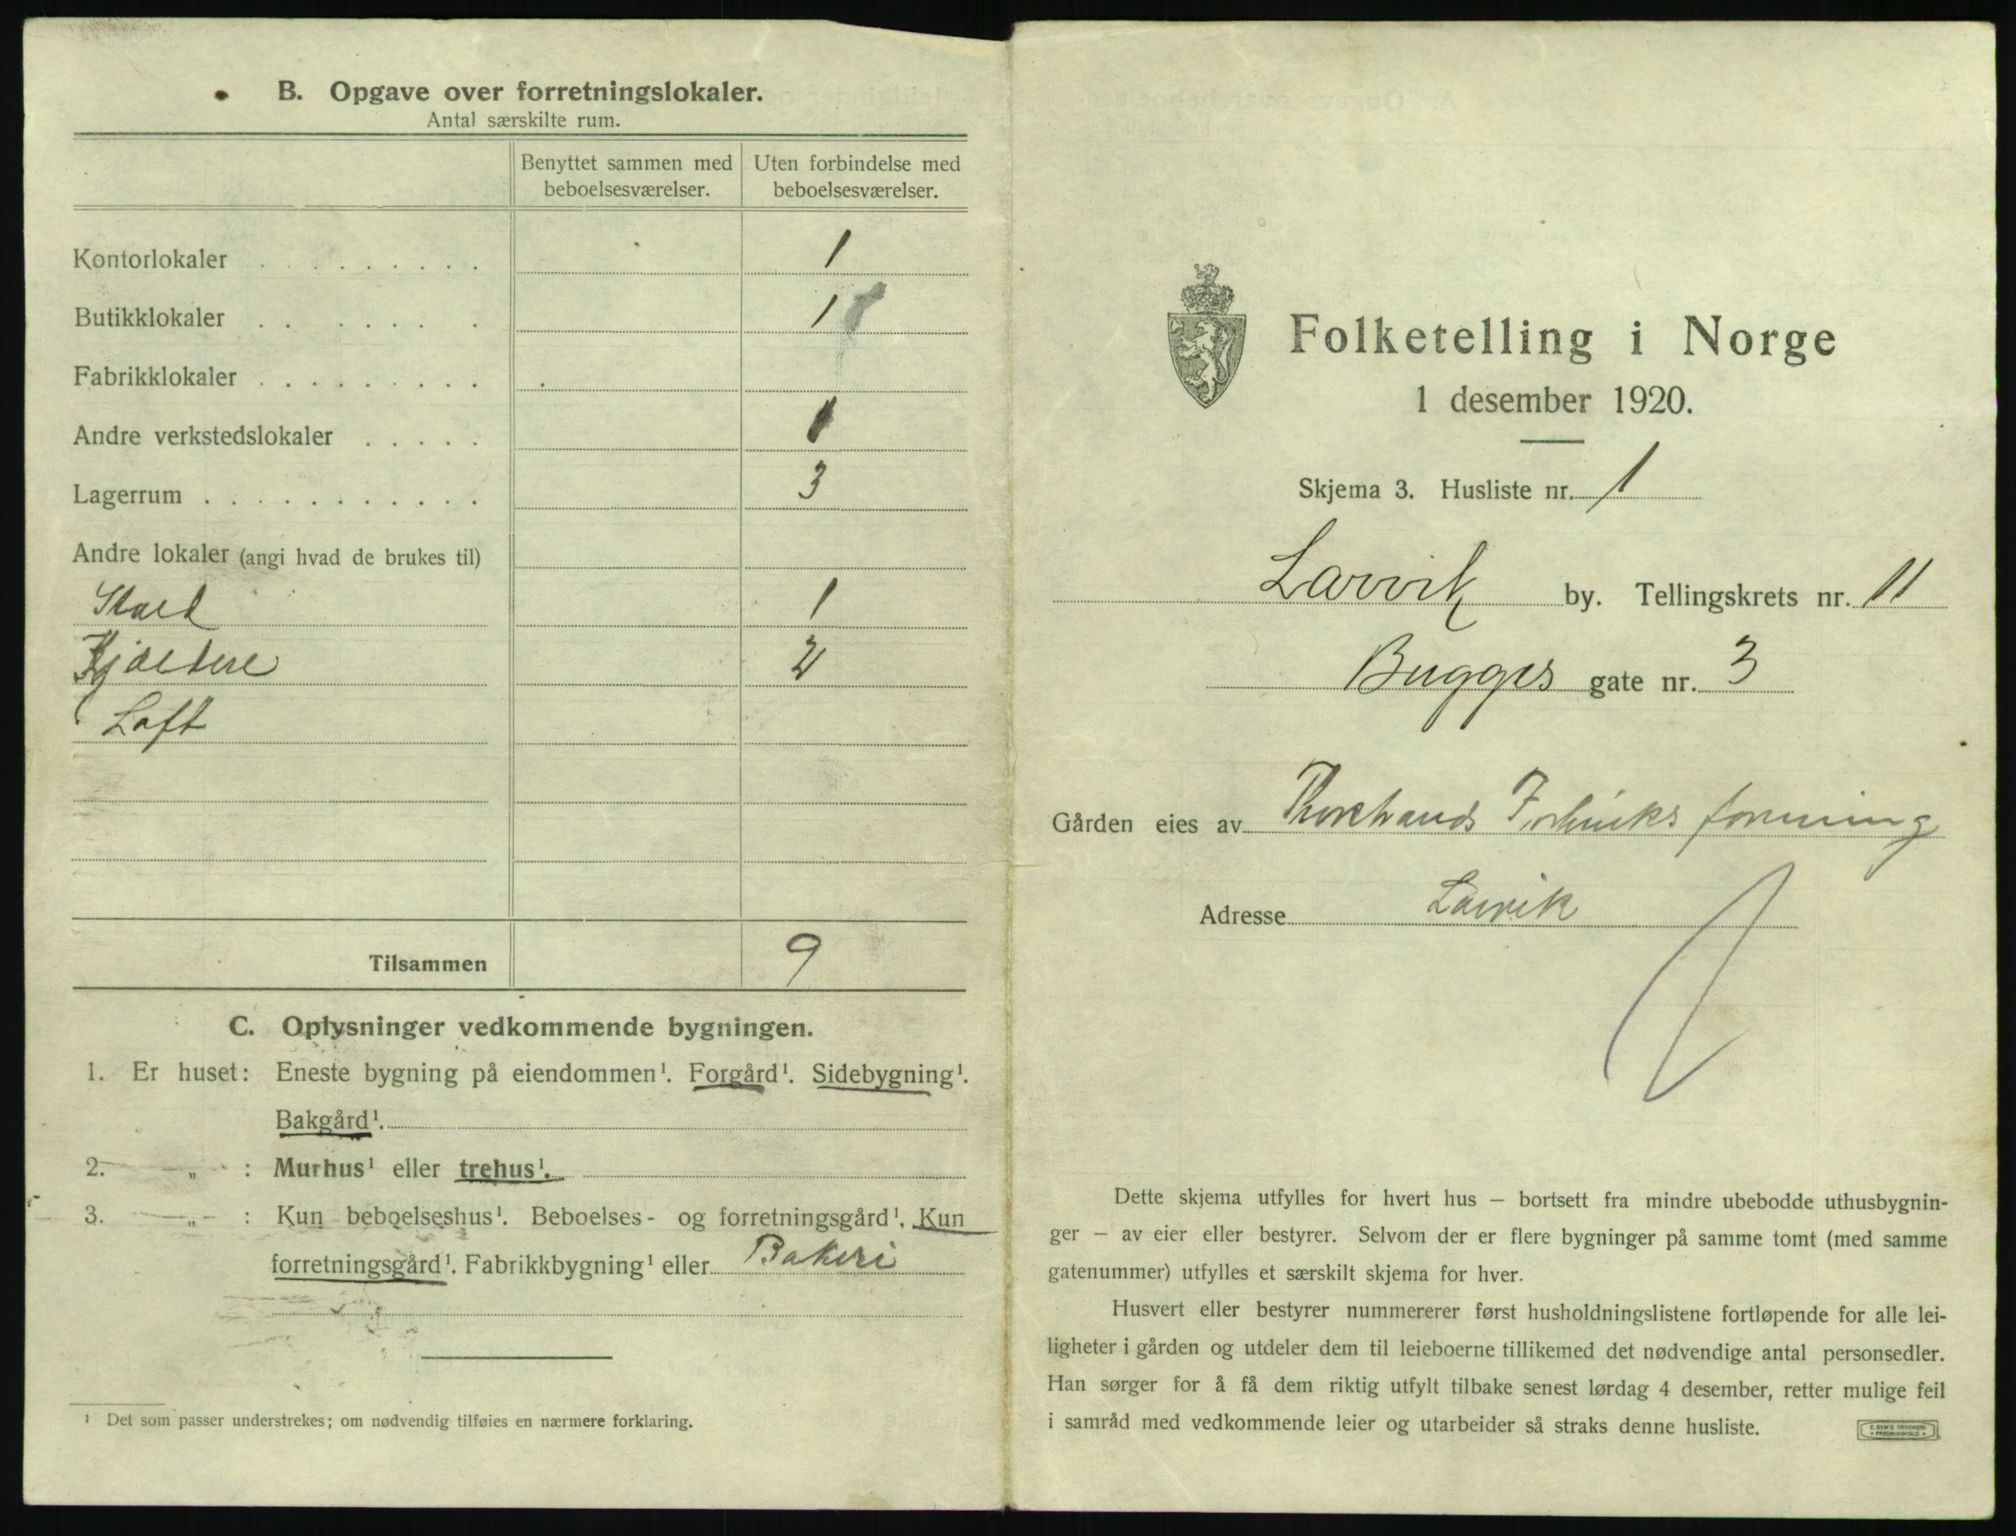 B. Opgave over forretningslokaler.
Antal særskilte rum.
Benyttet sammen med beboelsesværelser.
Uten forbindelse med beboelsesværelser.
Kontorlokaler . . . . . . . . . 1
Butikklokaler . . . . . . . 1
Fabrikklokaler . . . . . . . . .
Andre verkstedslokaler . . . . . 1
Lagerrum . . . . . . . . . . . 3
Andre lokaler (angi hvad de brukes til)
Stald 1
Kjældere 2
Loft
Tilsammen 9
C. Oplysninger vedkommende bygningen.
1. Er huset: Eneste bygning på eiendommen¹. Forgård¹. Sidebygning¹.
Bakgård¹.
2. — „ — : Murhus¹ eller trehus¹.
3. — „ — : Kun beboelseshus¹. Beboelses- og forretningsgård¹. Kun
forretningsgård¹. Fabrikkbygning¹ eller Bakeri
¹ Det som passer understrekes; om nødvendig tilføies en nærmere forklaring.
Folketelling i Norge
1 desember 1920.
Skjema 3. Husliste nr. 1
Larvik by. Tellingskrets nr. 11
Bugges gate nr. 3
Gården eies av forening
Adresse Larvik
Dette skjema utfylles for hvert hus — bortsett fra mindre ubebodde uthusbygnin-
ger — av eier eller bestyrer. Selvom der er flere bygninger på samme tomt (med samme
gatenummer) utfylles et særskilt skjema for hver.
Husvert eller bestyrer nummererer først husholdningslistene fortløpende for alle lei-
ligheter i gården og utdeler dem til leieboerne tillikemed det nødvendige antal personsedler.
Han sørger for å få dem riktig utfylt tilbake senest lørdag 4 desember, retter mulige feil
i samråd med vedkommende leier og utarbeider så straks denne husliste.